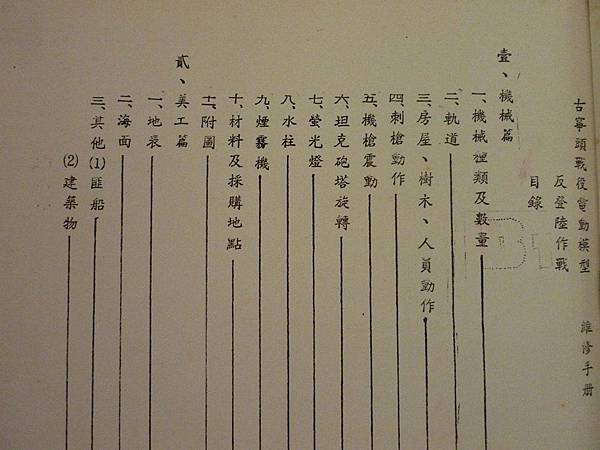 古寧頭戰役電動模型　維修手册
反登陸作戰
目錄
壹、機械篇
一、機械種類及數量
二、軌道
三、房屋、樹木、人員動作
四、刺槍動作
五、機槍震動
六、坦克砲塔旋轉
七、螢光燈
八、水柱
九、煙霧機
十、材料及採購地點
十一、附圖
貳、美工篇
一、地表
二、海面
三、其他(1)匪船
(2)建築物